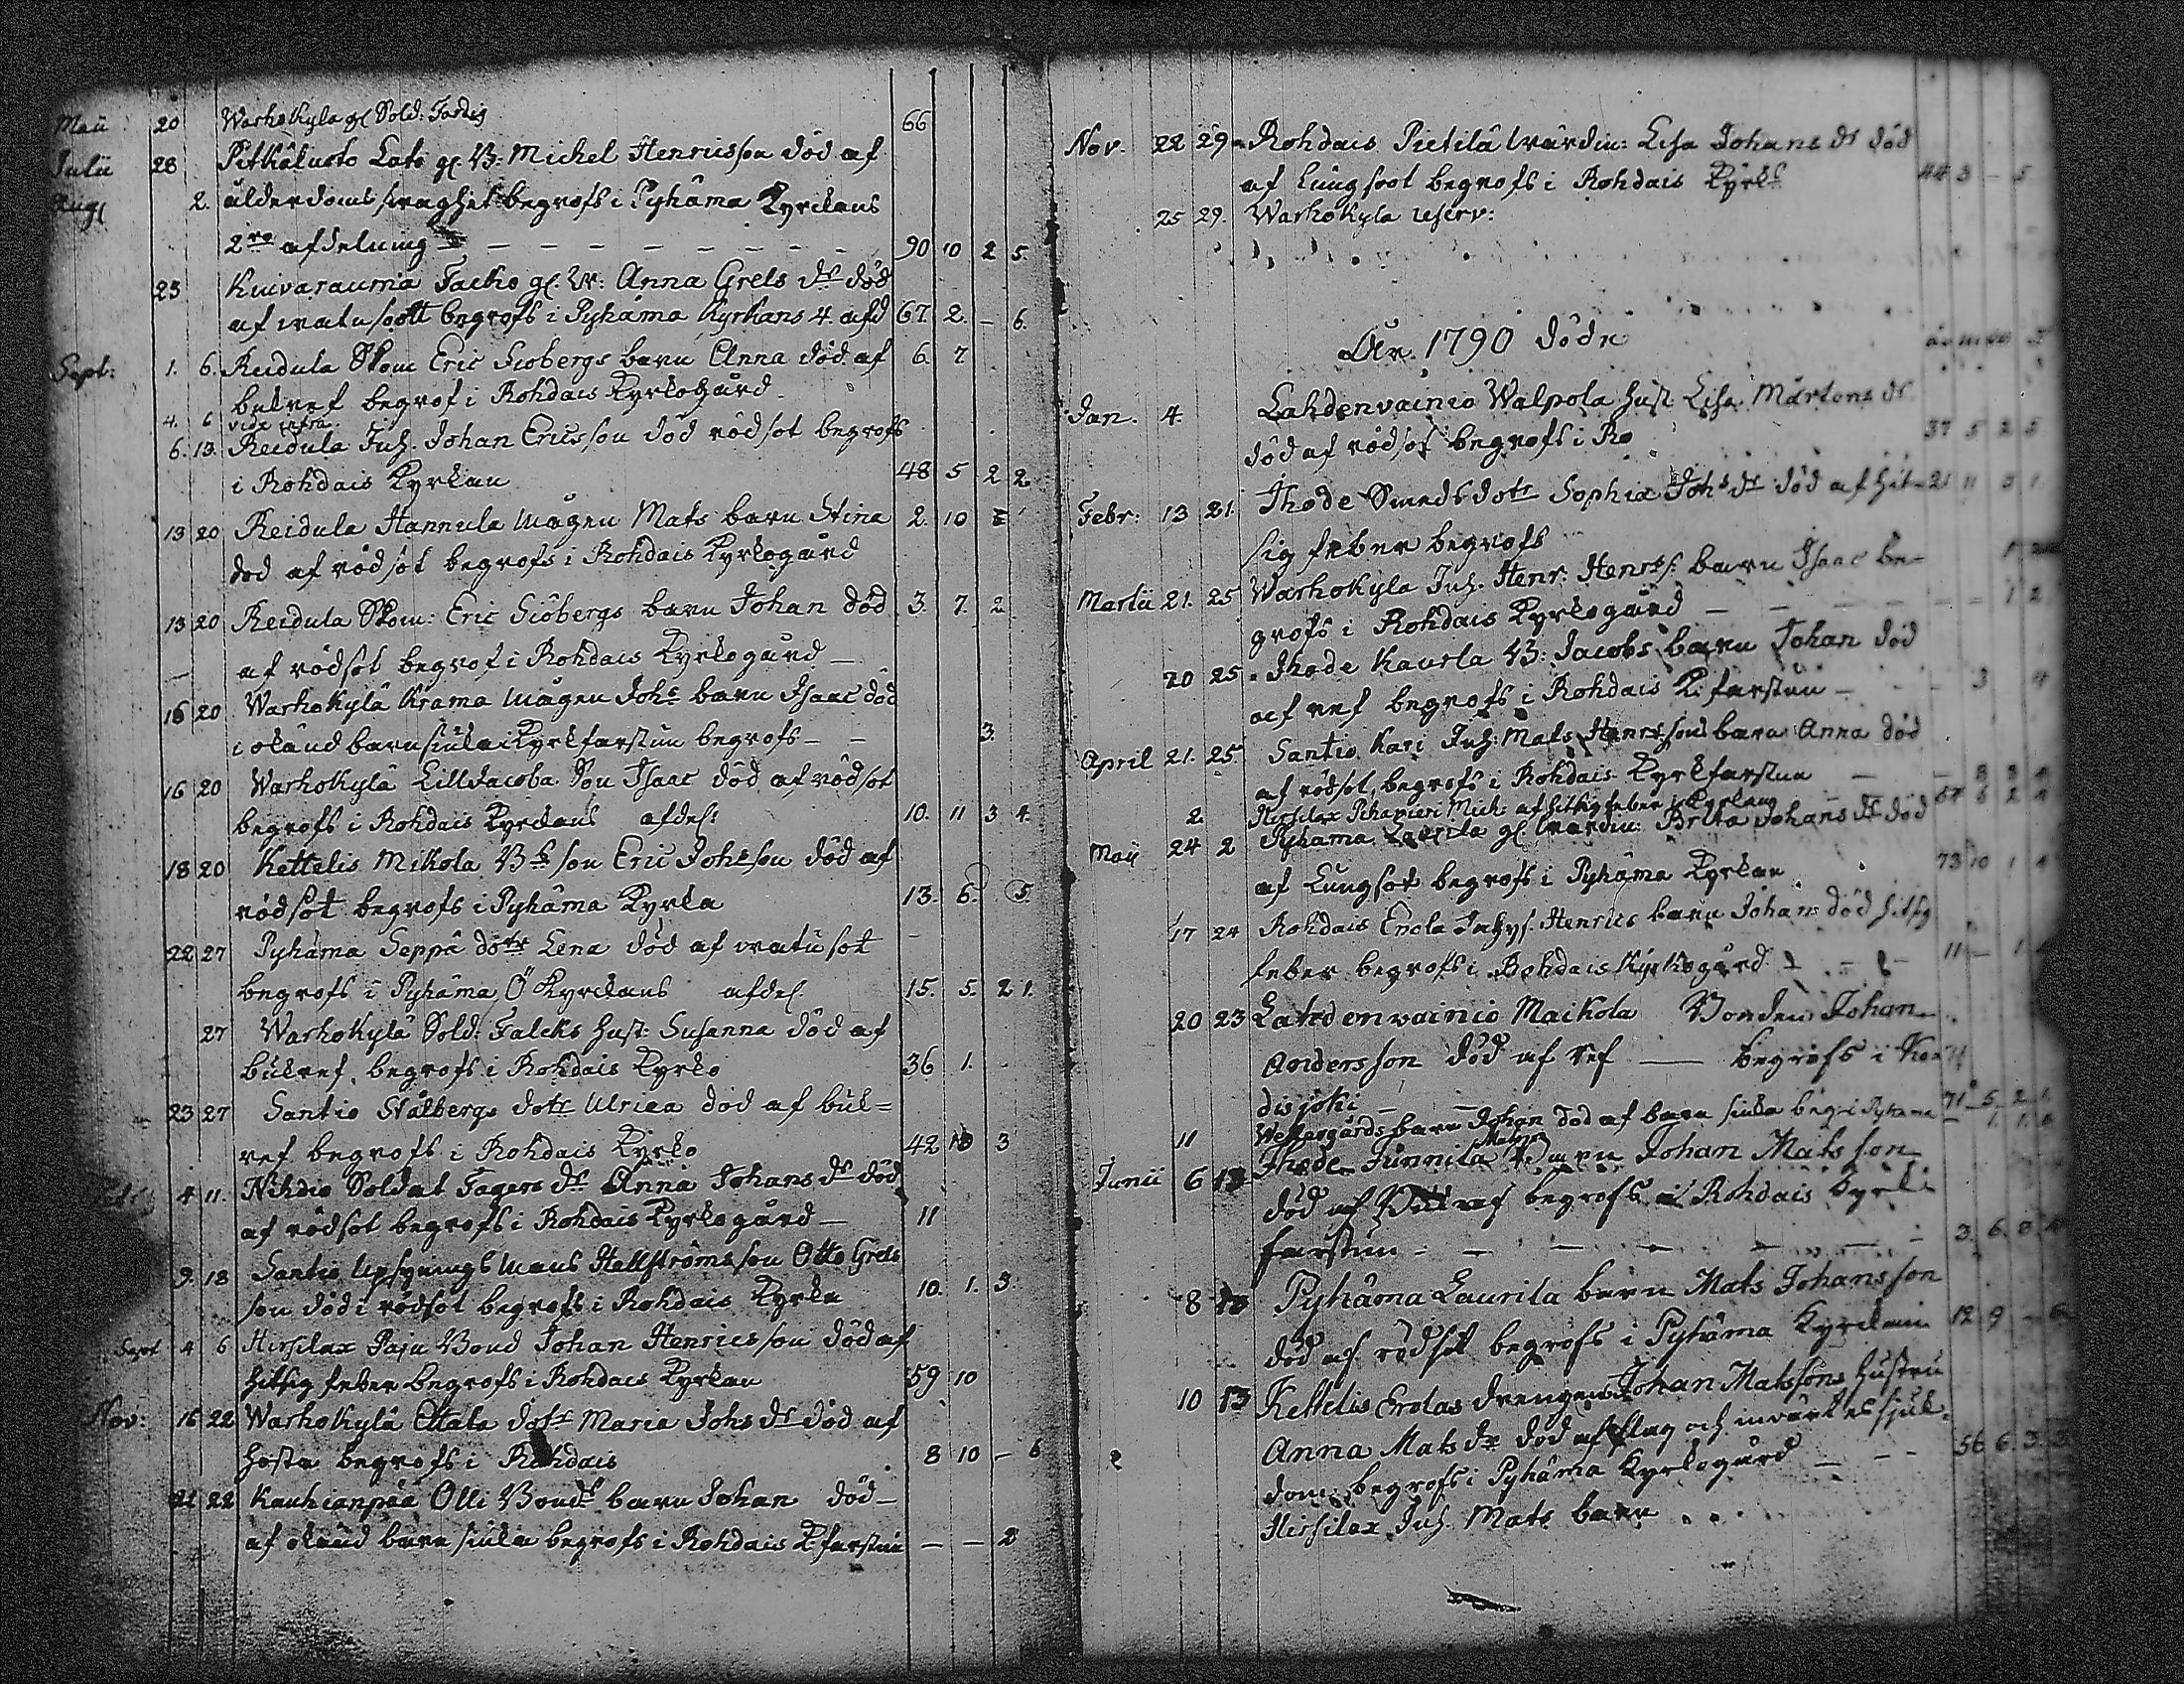 Maii 20 Warhokyla gl Sold: Fardig 66
Julii 28 Pitkäluoto Lato gl B: Michel Henricsson död af
Aug 2. ålderdoms svaghet begrofs i Pyhäma Kyrckans
2ra afdelning — — — — — — — 90 10 2 5.
23 Kuivarauma Jacko gl. W: Anna Grels dr död
af watusoott begrofs i Pyhäma Kyrkans 4. afd 67. 2. — 6.
Sept: 1. 6. Reidula Skom Eric Siobergs barn Anna död af 6 7
bukref begrof i Rohdais Kyrkogård
4. 6 vide infra
6. 13. Reidula Inh. Johan Ericsson död rödsot begrofs
i Rohdais Kyrkan 48 5 2 2
13 20 Reidula Hannula mågen Mats barn Stina 2. 10
död af rödsot begrofs i Rohdais Kyrkogård
13 20 Reidula Skom: Eric Siöbergs barn Johan död 3. 7. 2
af rödsot begrof i Rohdais Kyrkogård —
16 20 Warhokylä Krama mågen Johs barn Isaac död
i okänd barnsiuka i Kyrkfarstun begrofs — — 3.
16 20 Warhokylä Lilljacoba Son Isaac död af rödsot
begrofs i Rohdais Kyrckans afdel: 10. 11 3 4.
18 20 Kettelis Mikola Bs son Eric Johsson död af
rödsot begrofs i Pyhäma Kyrka 13. 6. 5.
22 27 Pyhäma Seppä dotr Lena död af watusot
begrofs i Pyhäma Ö Kyrckans afdel. 15. 5. 2 1.
27 Warhokylä Sold: Falcks hust: Susanna död af
bukref. begrofs i Rohdais Kyrko 36 1.
23 27 Santio Stålbergs dotr Ulrica död af buk=
ref begrofs i Rohdais Kyrko 42 10 3
4 11. Nihdio Soldat Fagers dr Anna Johans dr död
af rödsot begrofs i Rohdais Kyrkogård — 11
9. 18 Santio Upsynings mans Hellströms son Otto Grels
son död i rödsot begrofs i Rohdais Kyrka 10. 1. 3.
Sept 4 6 Hirsilax Paju Bond Johan Henricsson död af
hitsig feber begrofs i Rohdais Kyrkan 59 10
Nov: 16 22 Warhokylä Ettala dotr Maria Johs dr död af
hosta begrofs i Rohdais 8 10 — 6
21 22 Kauhianpää Olli Bonds barn Johan död —
af okänd barn siuka begrofs i Rohdais K. farstun — — 2
Nov. 22 29 Rohdais Pietilä wärdin: Lisa Johans dr död
af Lungsoot begrofs i Rohdais Kyrko 44 3 — 5
25 29. Warhokyla reserv:
År 1790 döde
Jan. 4. Lahdenvainio Walpola hust Lisa Mårtens dr
död af rödsot begrofs i Ro 37 5 2 5
Febr: 13 21. Ihode Smeds dotr Sophia Johs dr död af hit- 21 11 3 1
sig feber begrofs
Martii 21. 25 Warhokyla Inh. Henr: Henrs: barn Isaac be-
grofs i Rohdais Kyrkogård — — — — — 1 2
20 25 Ihode Kaurla B: Jacobs barn Johan död
af ref begrofs i Rohdais K. farstun — — 3 4
April 21. 25 Santio Kari Inh: Mats Henrssons barn Anna död
af rödsot, begrofs i Rohdais Kyrkfarstun — — 8 3 4
2. Hirsilax Mich: af hitsig feber i Kyrkan 6 2 4
Maij 24 2 Pyhäma Laurila gl. wärdin: Brita Johans dr död
af Lungsot begrofs i Pyhäma Kyrkan 73 10 1 4
17 24 Rohdais Erola Inhys. Henrics barn Johan död hitsig
feber begrofs i Rohdais Kyrkogård 11 — 1
20 23 Lahdenvainio Maikola Bonden Johan
Andersson död af ref — begrofs i Ko
disjoki — — 71 5 2 1
11 Westergårds barn Johan död af barn siuka begr i Pyhama — 1. 1. 6
Junii 6 13 Ihode Junnila Johan Matsson
död af begrofs i Rohdais Kyrk
farstun — — — — — 3. 6. 3.
8 13 Pyhäma Laurila barn Mats Johansson
död af rödsot begrofs i Pyhäma Kyrckan 12 9 — 6
10 13 Kettelis Erolas drengens Johan Matssons hustru
Anna Mats dr död af slag och invärtes sjuk-
dom begrofs i Pyhäma Kyrkogård — — — 56 6. 3.
Hirsilax Inh. Mats barn